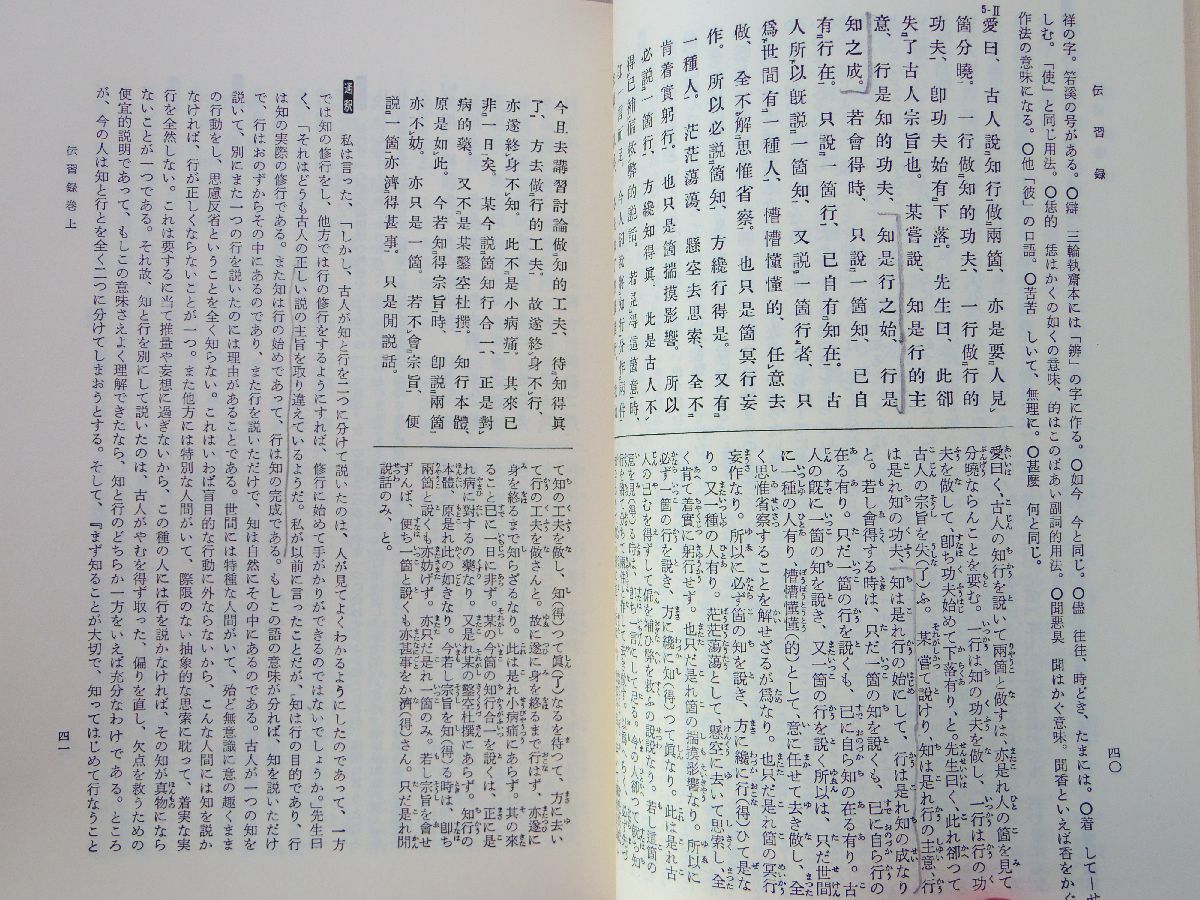 伝習録
四〇
祥の字。箬溪の号がある。〇辯 三輪執齋本には「辨」の字に作る。〇如今 今と同じ。〇儘 往往、時どき、たまには。〇着 して―せ
しむ。「使」と同じ用法。〇恁的 恁はかくの如くの意味、的はこのばあい副詞的用法。〇聞惡臭 聞はかぐ意味。聞香といえば香をかぐ
作法の意味になる。〇他「彼」の口語。〇苦苦 しいて、無理に。〇甚麼 何と同じ。
5-II
愛曰、古人說知行做兩箇、亦是要人見
箇分曉。一行做知的功夫、一行做行的
功夫、卽功夫始有下落。先生曰、此卻
失了古人宗旨也。某嘗說、知是行的主
意、行是知的功夫、知是行之始、行是
知之成。若會得時、只說一箇知、已自
有行在。只說一箇行、已自有知在。古
人所以旣說一箇知、又說一箇行者、只
爲世間有一種人、懵懵懂懂的、任意去
做、全不解思惟省察。也只是箇冥行妄
作。所以必說箇知、方纔行得是。又有
一種人。茫茫蕩蕩、懸空去思索、全不
肯着實躬行。也只是箇揣摸影響。所以
必說一箇行、方纔知得眞。此是古人不
得已補偏救弊的說話。若見得這箇意時、
愛曰く、古人の知行を說いて兩箇と做すは、亦是れ人の箇を見て
分曉ならんことを要む。一行は知の功夫を做し、一行は行の功
夫を做して、卽ち功夫始めて下落有り、と。先生曰く、此れ卻つて
古人の宗旨を失(了)ふ。某嘗て說けり、知は是れ行の主意、行
は是れ知の功夫、知は是れ行の始にして、行は是れ知の成なり
と。若し會得する時は、只だ一箇の知を說くも、已に自ら行の
在る有り。只だ一箇の行を說くも、已に自ら知の在る有り。古
人の旣に一箇の知を說き、又一箇の行を說く所以は、只だ世間
に一種の人有り、懵懵懂懂(的)として、意に任せて去き做し、全
く思惟省察することを解せざるが爲なり。也只だ是れ箇の冥行
妄作なり。所以に必ず箇の知を說き、方に纔に行(得)ひて是な
り。又一種の人有り。茫茫蕩蕩として、懸空に去いて思索し、全
く肯て着實に躬行せず。也只だ是れ箇の揣摸影響なり。所以に
必ず一箇の行を說き、方に纔に知(得)つて眞なり。此は是れ古
人の已むを得ずして偏を補ひ弊を救ふの說話なり。若し這箇の
今且去講習討論做知的工夫、待知得眞
了、方去做行的工夫。故遂終身不行、
亦遂終身不知。此不是小病痛。其來已
非一日矣。某今說箇知行合一、正是對
病的藥。又不是某鑿空杜撰。知行本體、
原是如此。今若知得宗旨時、卽說兩箇
亦不妨。亦只是一箇。若不會宗旨、便
說一箇、亦濟得甚事。只是閒說話。
て知の工夫を做し、知(得)つて眞(了)なるを待つて、方に去い
て行の工夫を做さんと。故に遂に身を終るまで行はず、亦遂に
身を終るまで知らざるなり。此は是れ小病痛にあらず。其の來
ること已に一日に非ず。某の今箇の知行合一を說くは、正に是
れ病に對するの藥なり。又是れ某の鑿空杜撰にあらず。知行の
本體、原是れ此の如きなり。今若し宗旨を知(得)る時は、卽ち
兩箇と說くも亦妨げず。亦只だ是れ一箇のみ。若し宗旨を會せ
ずんば、便ち一箇と說くも亦甚事をか濟(得)さん。只だ是れ閒
說話のみ、と。
通釈 私は言った、「しかし、古人が知と行を二つに分けて説いたのは、人が見てよくわかるようにしたのであって、一方
では知の修行をし、他方では行の修行をするようにすれば、修行に始めて手がかりができるのではないでしょうか。」先生曰
く、「それはどうも古人の正しい説の主旨を取り違えているようだ。私が以前に言ったことだが、『知は行の目的であり、行
は知の実際の修行である。また知は行の始めであって、行は知の完成である。』もしこの語の意味が分れば、知を説いただけ
で、行はおのずからその中にあるのであり、また行を説いただけで、知は自然にその中にあるのである。古人が一つの知を
説いて、別にまた一つの行を説いたのには理由があることである。世間には特種な人間がいて、殆ど無意識に意の趣くまま
の行動をし、思慮反省ということを全く知らない。これはいわば盲目的な行動に外ならないから、こんな人間には知を説か
なければ、行が正しくならないことが一つ。また他方には特別な人間がいて、際限のない抽象的な思索に耽って、着実な実
行を全然しない。これは要するに当て推量や妄想に過ぎないから、この種の人には行を説かなければ、その知が真物になら
ないことが一つである。それ故、知と行を別にして説いたのは、古人がやむを得ず取った、偏りを直し、欠点を救うための
便宜的説明であって、もしこの意味さえよく理解できたなら、知と行のどちらか一方をいえば充分なわけである。ところ
が、今の人は知と行とを全く二つに分けてしまおうとする。そして、『まず知ることが大切で、知ってはじめて行なうこと
伝習録巻上
四一